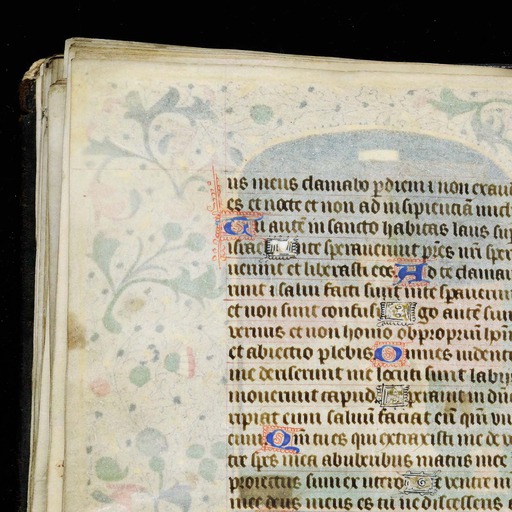 us meus clamabo p diem ⁊ non exau
es et nocte et non ad insipientiā mich
Tu autē in sancto habitas laus
israel In te speraverunt p̄res nr̄i sper
uerunt et liberasti eos Ad te clamau
runt ⁊ salui facti sunt in te sperauerun
et non sunt confusi Ego autē sum
vermis et non homo obprobriū
et abiectio plebis Omnes uident
me deriserunt me locuti sunt laby
mouerunt capud Sperauit in dno
ripiat eum saluū faciat eū qm̄ vu
eum Qm̄ tu es qui extraxisti me de v
tre spes mea ab uberibus matris mee
proiectus sum ex utero De ventre m
mee deus meus es tu ne discesseris